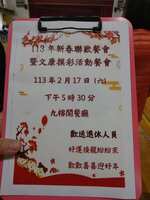 113年新春聯歡餐會
暨文康摸彩活動餐會
113年2月17日(六)
下午5時30分
九樓開餐廳
歡送退休人員
好運接龍紛紛來
歡歡喜喜迎好年